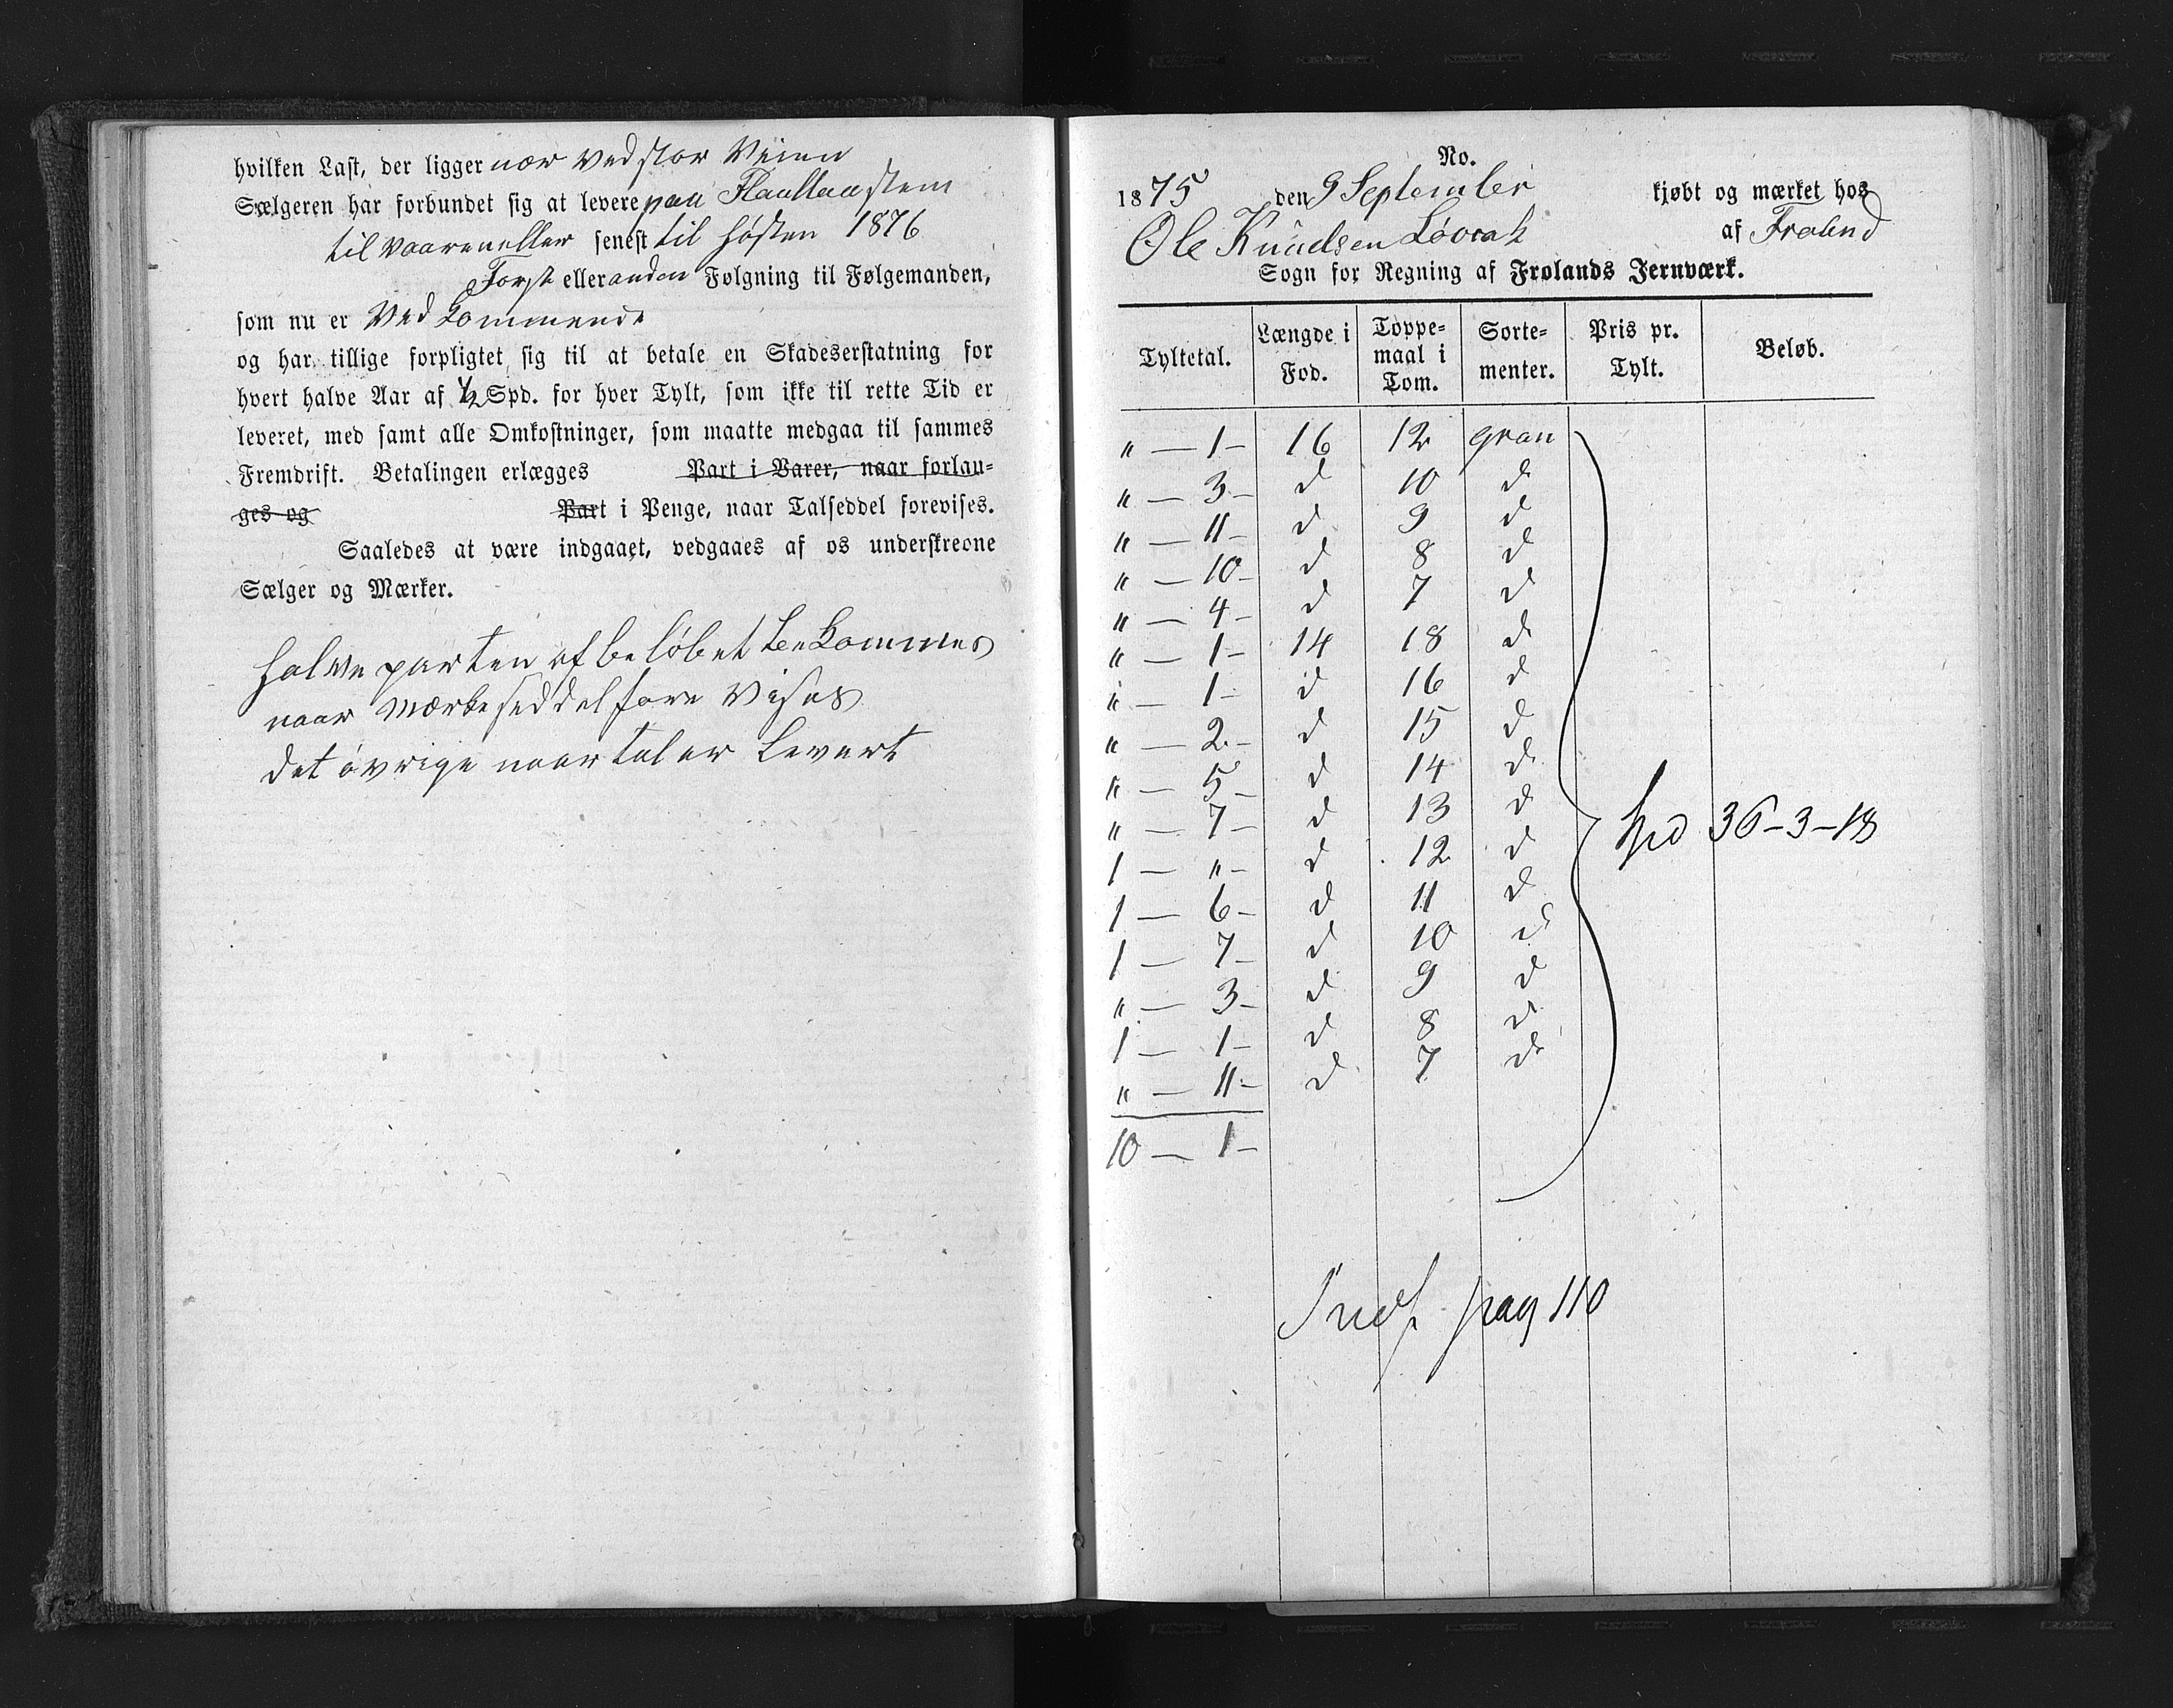 hvilken Last, der ligger nær ved stor Veien
Sælgeren har forbundet sig at levere paa Flaatlaastem
til vaaren eller senest til høsten 1876
Først eller anden Følgning til Følgemanden,
som nu er Vedkommende
og har tillige forpligtet sig til at betale en Skadeserstatning for
hvert halve Aar af 1/2 Spd. for hver Tylt, som ikke til rette Tid er
leveret, med samt alle Omkostninger, som maatte medgaa til sammes
Fremdrift. Betalingen erlægges Part i Varer, naar forlan-
ges og Part i Penge, naar Talseddel forevises.
Saaledes at være indgaaet, vedgaaes af os underskrevne
Sælger og Mærker.
halve parten af beløbet bekommes
naar Mærkeseddel fore Vises
det øvrige naar tal er Levert
No.
1875 den 9 September kjøbt og mærket hos
Ole Knudsen Løvrak af Froland
Sogn for Regning af Frolands Jernværk.
Tyltetal. Længde i Fod. Toppe-maal i Tom. Sorte-menter. Pris pr. Tylt. Beløb.
" — 1 – 16 12 gran
" — 3 – d 10 d
" — 11 – d 9 d
" — 10 – d 8 d
" — 4 – d 7 d
" — 1 – 14 18 d
" — 1 – d 16 d
" — 2 – d 15 d
" — 5 – d 14 d
" — 7 – d 13 d
1 — " – d 12 d
1 — 6 – d 11 d
1 — 7 – d 10 d
" — 3 – d 9 d
1 — 1 – d 8 d
" — 11 – d 7 d
36–3–18
10 — 1 –
Indf pag 110